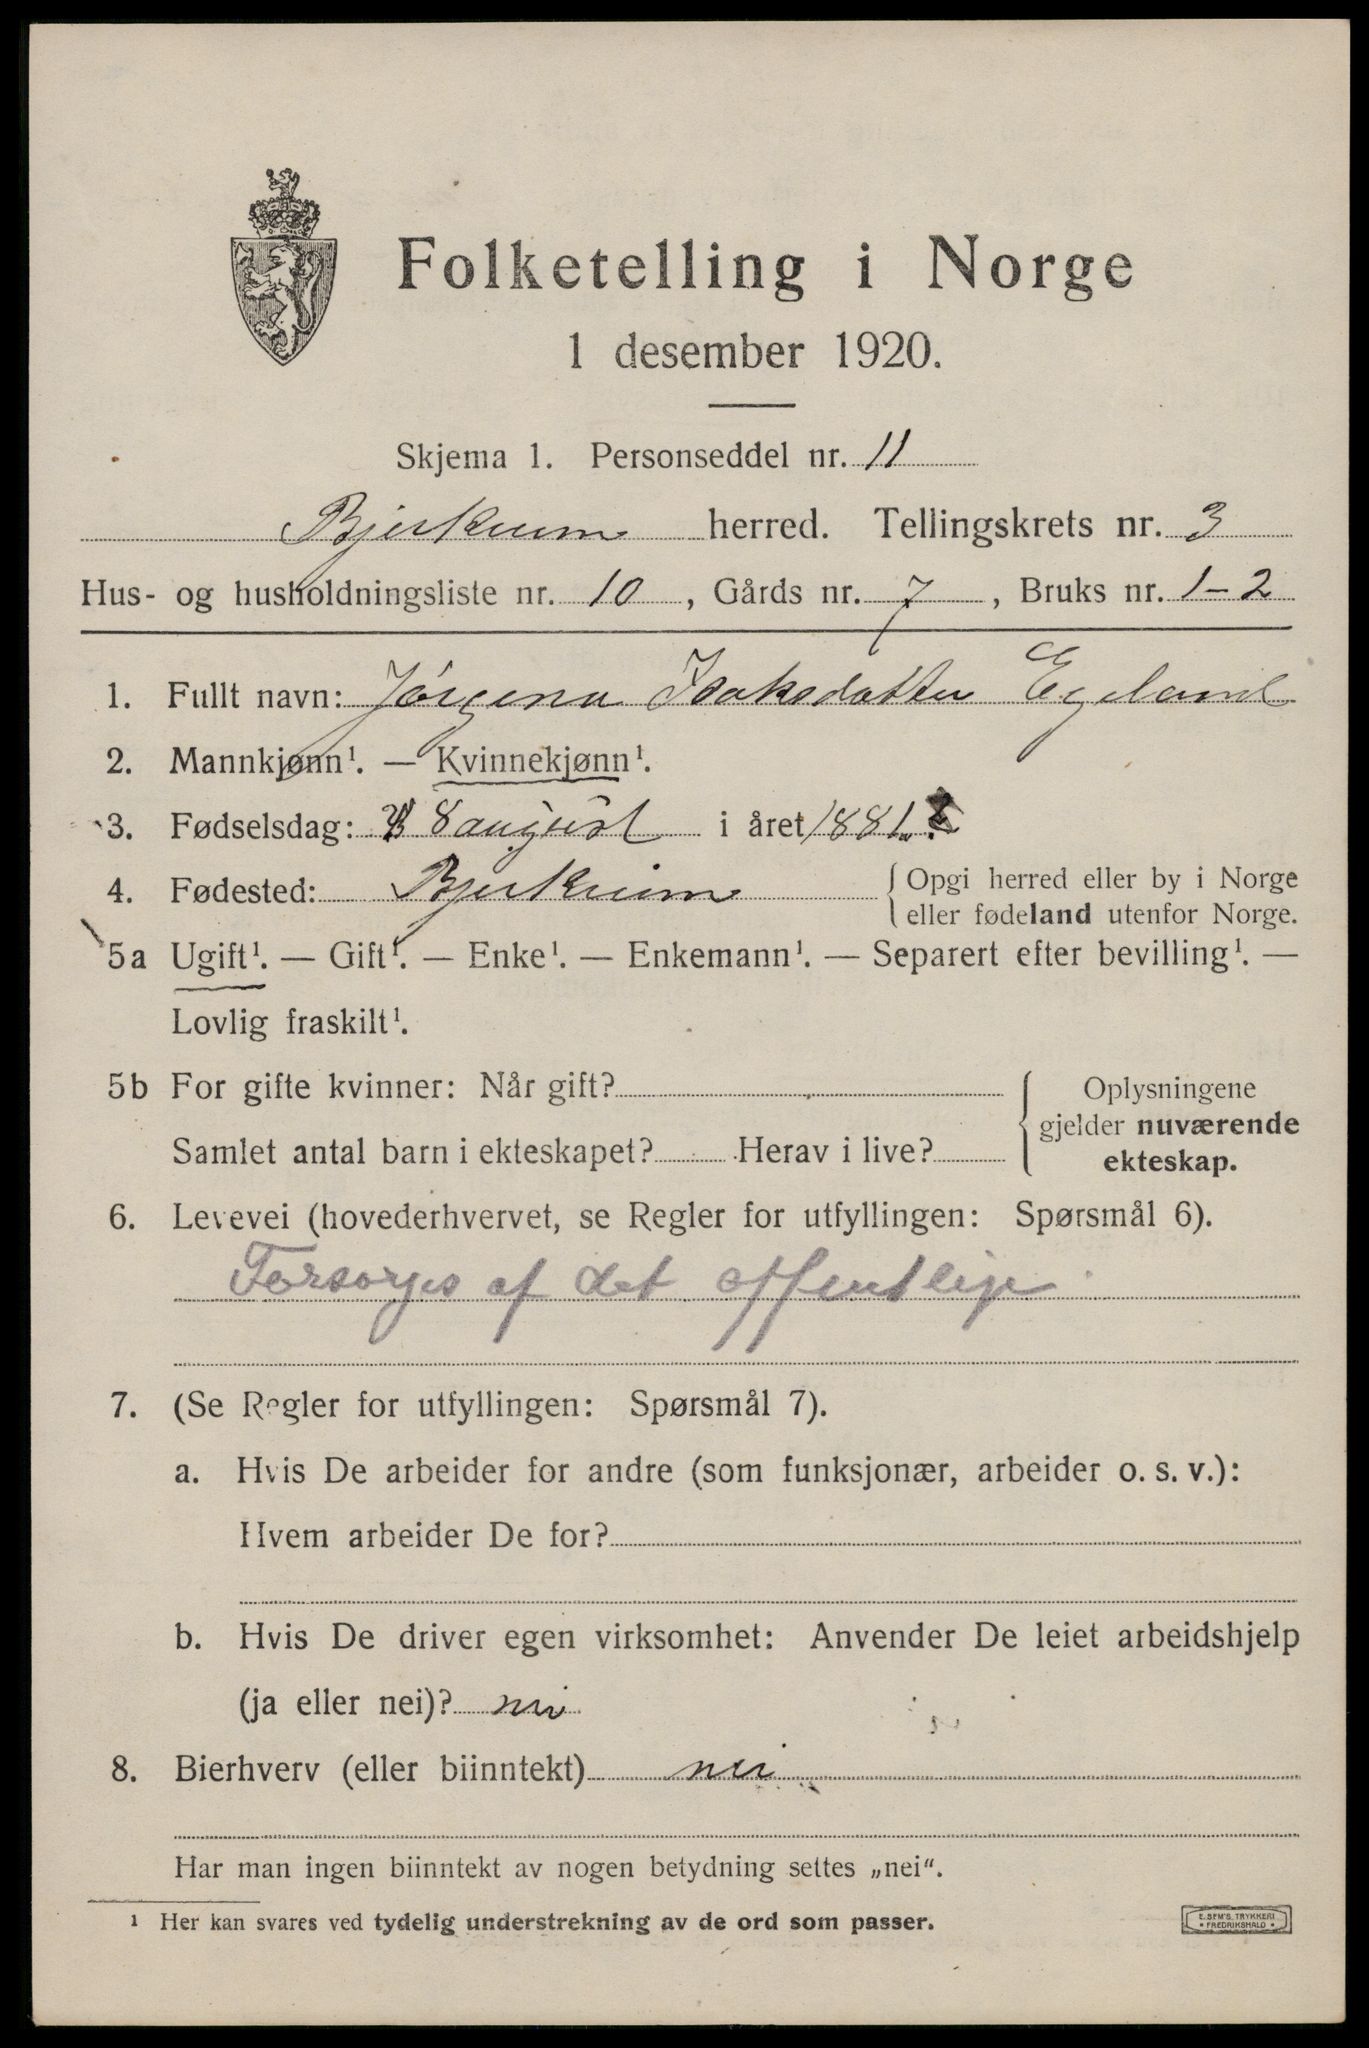 Folketelling i Norge
1 desember 1920.
Skjema 1. Personseddel nr. 11
Bjerkreim herred. Tellingskrets nr. 3
Hus- og husholdningsliste nr. 10, Gårds nr. 7, Bruks nr. 1-2
1. Fullt navn: Jørgena Isaksdatter Egeland
2. Mannkjønn¹. — Kvinnekjønn¹.
3. Fødselsdag: 8 august i året 1881
4. Fødested: Bjerkreim { Opgi herred eller by i Norge
eller fødeland utenfor Norge.
5a Ugift¹. — Gift¹. — Enke¹. — Enkemann¹. — Separert efter bevilling¹. —
Lovlig fraskilt¹.
5b For gifte kvinner: Når gift?
Samlet antal barn i ekteskapet? Herav i live?
{ Oplysningene
gjelder nuværende
ekteskap.
6. Levevei (hovederhvervet, se Regler for utfyllingen: Spørsmål 6).
Forsørges af det offentlige
7. (Se Regler for utfyllingen: Spørsmål 7).
a. Hvis De arbeider for andre (som funksjonær, arbeider o. s. v.):
Hvem arbeider De for?
b. Hvis De driver egen virksomhet: Anvender De leiet arbeidshjelp
(ja eller nei)? nei
8. Bierhverv (eller biinntekt) nei
Har man ingen biinntekt av nogen betydning settes „nei".
¹ Her kan svares ved tydelig understrekning av de ord som passer.
E. SEM'S TRYKKERI
* FREDRIKSHALD *